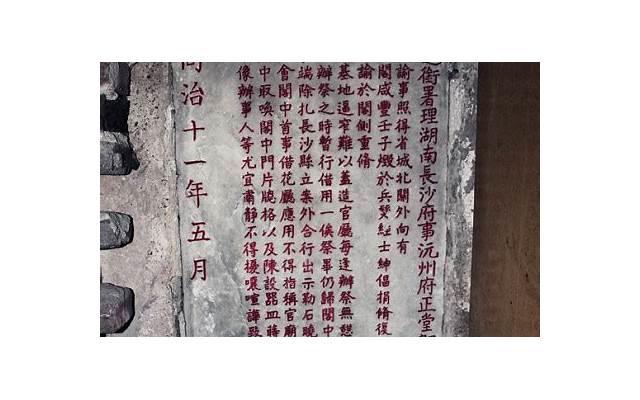 銜署理湖南長沙府事沅州府正堂
諭事照得省城北關外向有
閣咸豐壬子燬於兵燹經士紳倡捐脩復
諭於閣側重脩
基地逼窄難以蓋造官廳每逢辦祭無憩
辦祭之時暫行借用一俟祭畢仍歸閣中
端除扎長沙縣立案外合行出示勒石曉
會閣中首事借花廳應用不得指稱官廟
中取喚閣中門片槅以及陳設器皿
像辦事人等尤宜肅靜不得擾嚷喧譁致
同治十一年五月